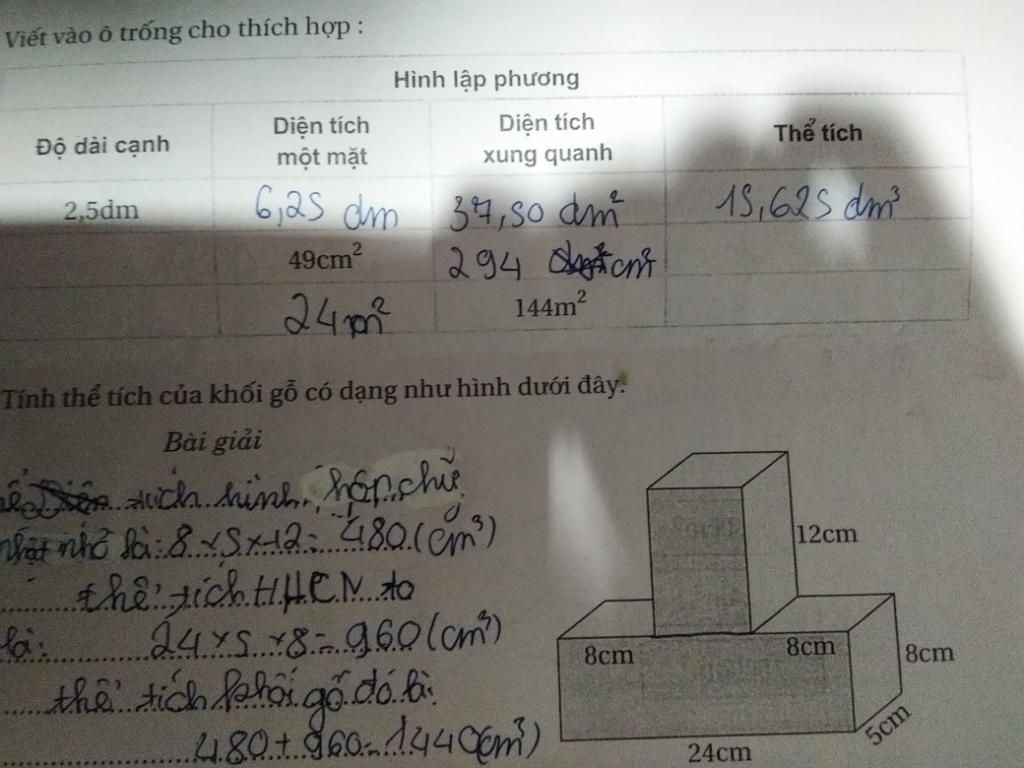 Viết vào ô trống cho thích hợp :
Hình lập phương
Độ dài cạnh
Diện tích một mặt
Diện tích xung quanh
Thể tích
2,5dm
6,25 dm
37,50 dm²
15,625 dm³
49cm²
294
cm²
24m²
144m²
Tính thể tích của khối gỗ có dạng như hình dưới đây:
Bài giải
tích hình hộp chữ
nhật nhỏ là: 8 x 5 x 12 = 480 (cm³)
thể tích HHCN to
là: 24 x 5 x 8 = 960 (cm³)
thể tích khối gỗ đó là:
480 + 960 = 1440 (cm³)
12cm
8cm
8cm
8cm
5cm
24cm